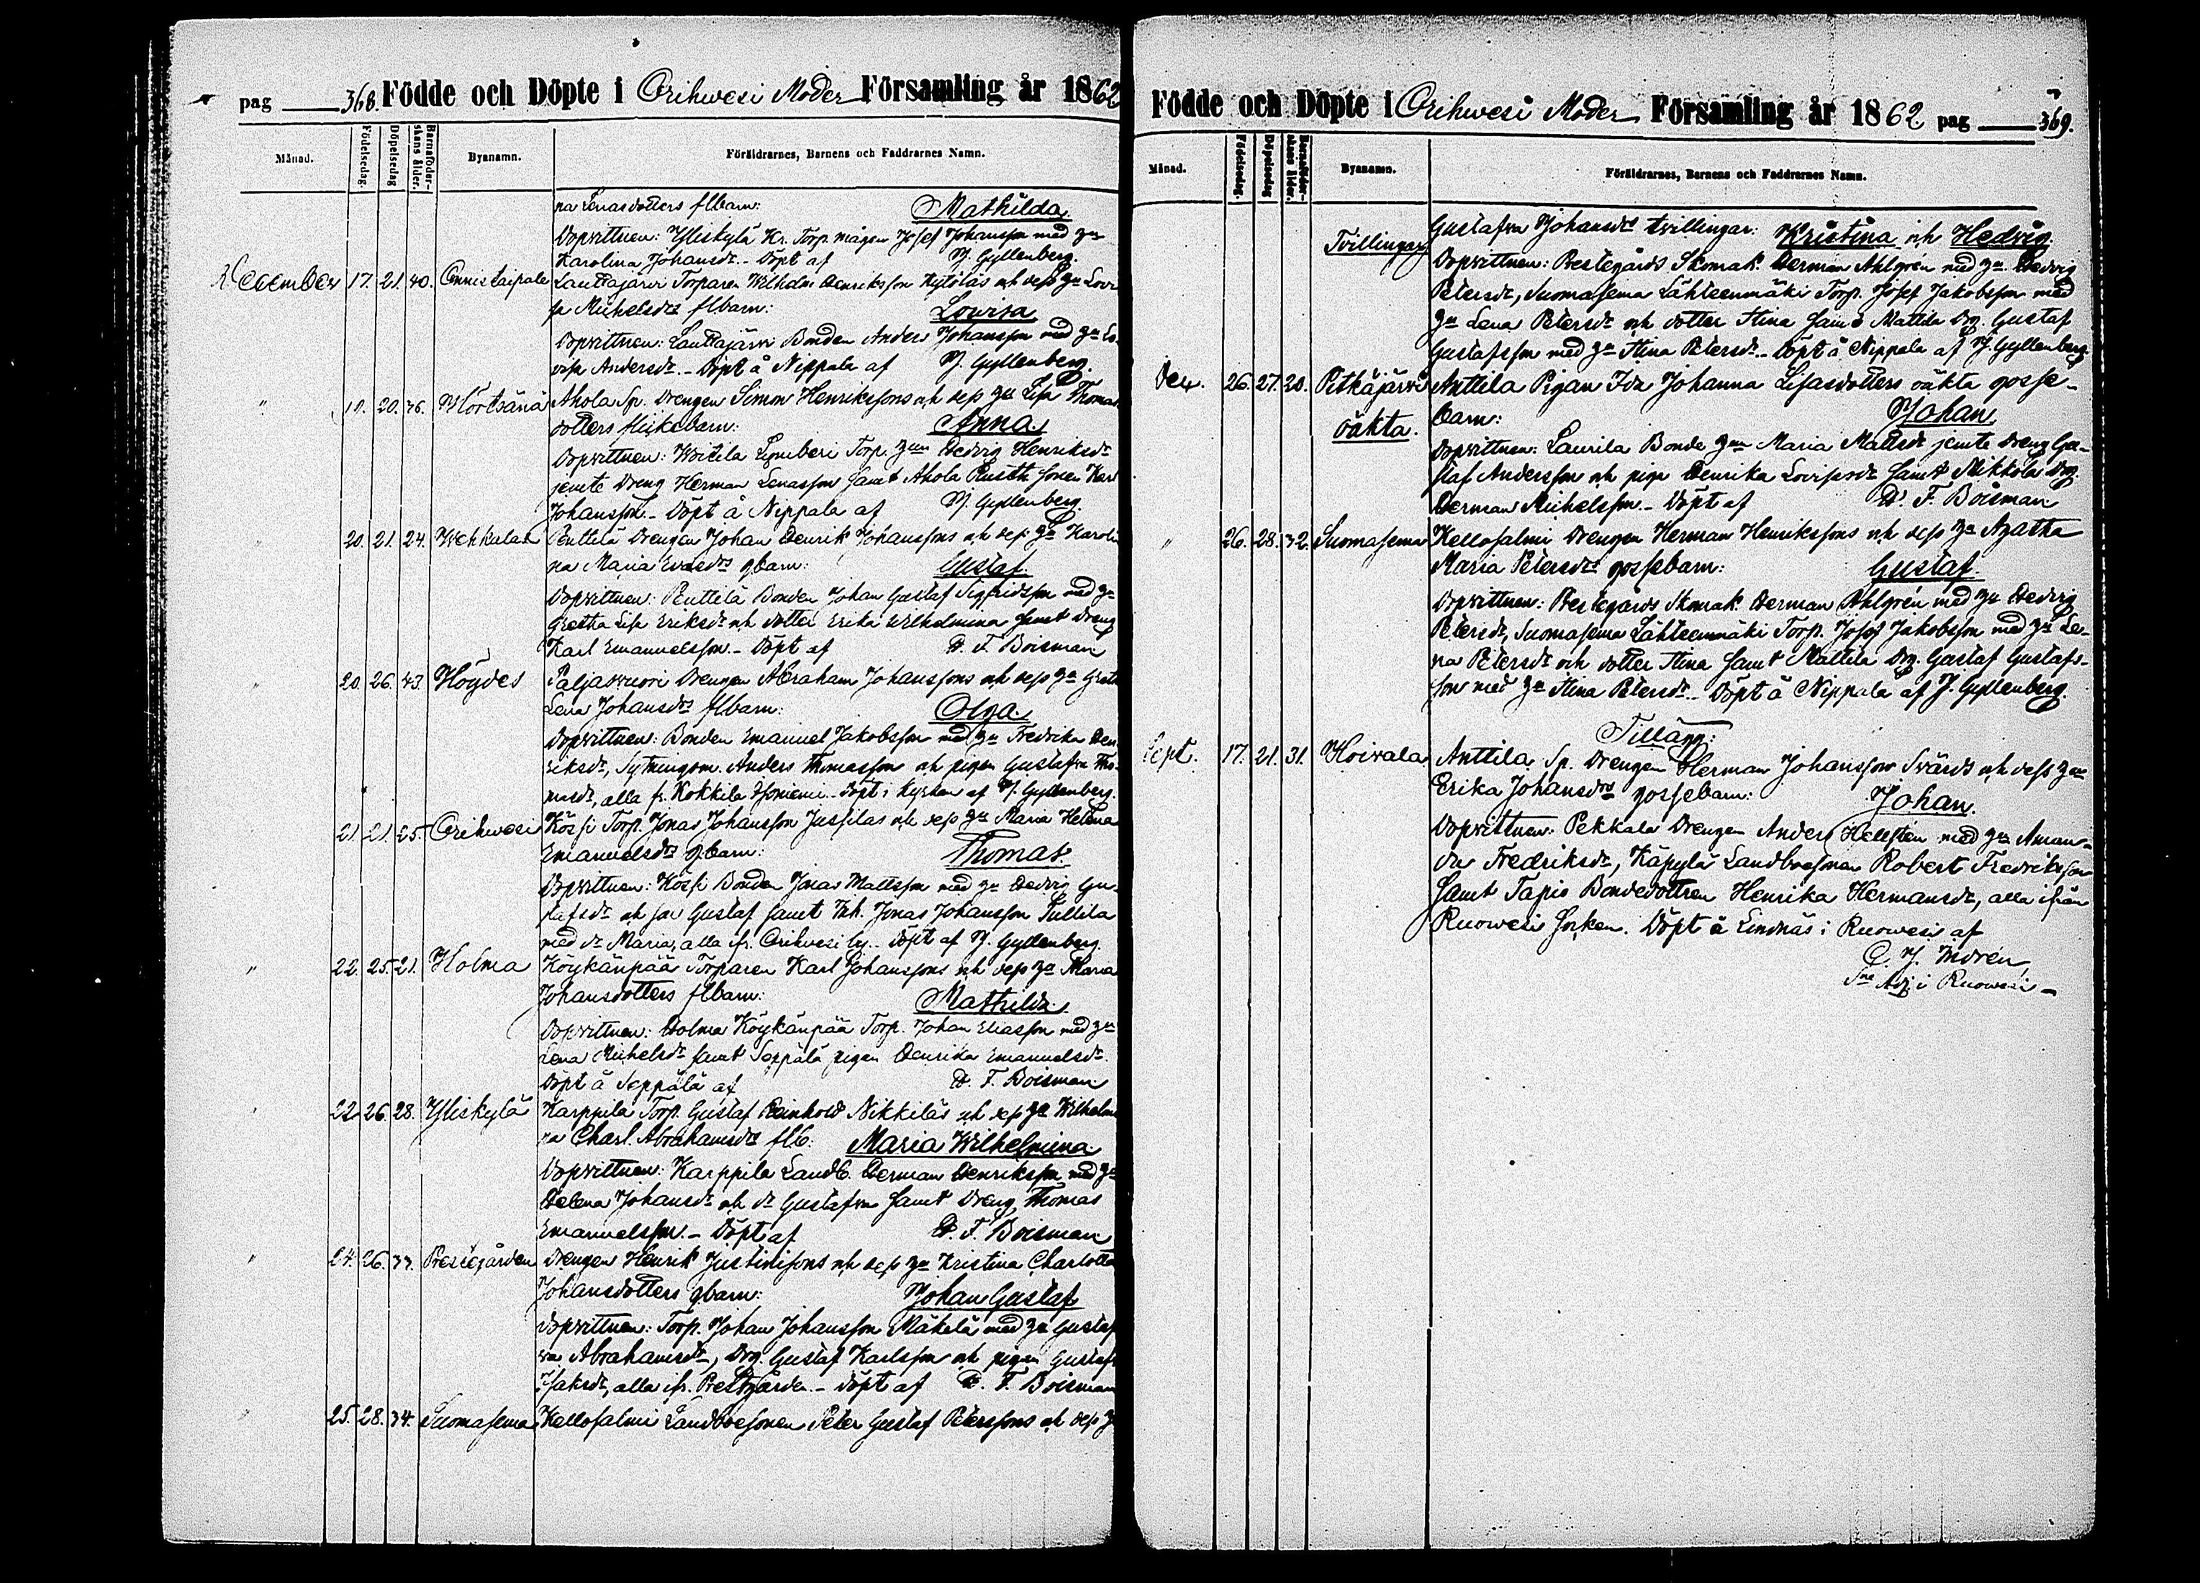 pag 368. Födde och Döpte i Orihwesi Moder Församling år 1862
Månad. Födelsedag. Döpelsedag Barnaföderskans ålder. Byanamn. Föräldrarnes, Barnens och Faddrarnes Namn.
na Lenasdotters flbarn: Mathilda
Dopvittnen: Yliskylä Kr. Torp. mågen Josef Johansson med hu
Karolina Johansdr. - Döpt af J. Gyllenberg.
December 17. 21. 40. Onnistaipale Lauttajärvi Torparen Wilhelm Henriksson Kytölas och dess hu Lovi
sa Michelsdrs flbarn: Lovisa
Dopvittnen: Lauttajärvi Bonden Anders Johansson med hu Lo-
visa Andersdr. - Döpt å Nippala af J. Gyllenberg.
" 19. 20. 36. Hörtsänä Ahola Sp. Drengen Simon Henrikssons och dess hu Lisa Thomas
dotters flickebarn: Anna
Dopvittnen: Torp. hun Hedvig Henriksdr
jemte Dreng Herman Lenasson samt Ahola Rusth. sonen Karl
Johansson. - Döpt å Nippala af J. Gyllenberg.
20. 21. 24. Wehkalah Penttilä Drengen Johan Henrik Johanssons och dess hu Karoli
na Maria gbarn: Gustaf
Dopvittnen: Penttilä Bonden Johan Gustaf Sigfridsson med hu
Gretha Lisa Eriksdr och dotter Erika Wilhelmina samt Dreng
Karl Emanuelsson. - Döpt af D. F. Boisman
" 20. 26. 43. Höydes Paljasvuori Drengen Abraham Johanssons och dess hu Greta
Lena Johansdrs flbarn: Olga
Dopvittnen: Bonden Emanuel Jakobsson med hu Fredrika Hen
riksdr, Sytningsm. Anders Thomasson och pigan Gustafva Tho-
masdr, alla fr. Kokkila. Döpt i kyrkan af J. Gyllenberg.
21. 21. 25. Orihwesi Kössi Torp. Jonas Johansson Jussilas och dess hu Maria Helena
Emanuelsdrs gbarn: Thomas
Dopvittnen: Kössi Bonden Jonas Mattsson med hu Hedvig Gu-
stafsdr och son Gustaf samt Inh. Jonas Johansson Tullila
med dr Maria, alla ifr. Orihvesi by. - Döpt af J. Gyllenberg.
" 22. 25. 21. Holma Köykänpää Torparen Karl Johanssons och dess hu Maria
Johansdotters flbarn: Mathilda
Dopvittnen: Holma Köykänpää Torp. Johan Eliasson med hu
Lena Michelsdr samt Seppälä pigan Henrika Emanuelsdr.
Döpt å Seppälä af D. F. Boisman
" 22. 26. 28. Yliskylä Karppila Torp. Gustaf Reinhold Nikkiläs och dess hu Wilhelmi
na Charl. Abrahamsdrs flb: Maria Wilhelmina
Dopvittnen: Karppila Landb. Herman Henriksson med hu
Helena Johansdr och dr Gustafva samt Dreng Thomas
Emanuelsson. - Döpt af D. F. Boisman
" 24. 26. 33. Prestegården Drengen Henrik Justinssons och dess hu Kristina Charlotta
Johansdotters gbarn: Johan Gustaf
Dopvittnen: Torp. Johan Johansson Mäkelä med hu Gustaf
va Abrahamsdr, Drg. Gustaf Karlsson och pigan Gustafva
Isaksdr, alla ifr. Prestgården. - Döpt af D. F. Boisman
25. 28. 34. Suomasema Kellosalmi Landbosonen Peter Gustaf Peterssons och dess h
Födde och Döpte i Orihwesi Moder Församling år 1862 pag 369.
Månad. Födelsedag. Döpelsedag Barnaföderskans ålder. Byanamn. Föräldrarnes, Barnens och Faddrarnes Namn.
Tvillingar Gustafva Johansdrs tvillingar: Kristina och Hedvig
Dopvittnen: Prestegårds Skomak. Herman Ahlgrén med hu Hedvig
Petersdr, Suomasema Lähteenmäki Torp. Josef Jakobsson med
hu Lena Petersdr och dotter Stina samt Mattila Drg. Gustaf
Gustafsson med hu Stina Petersdr. - Döpt å Nippala af J. Gyllenberg
Dec. 26. 27. 20. Pitkäjärvi Anttila Pigan Ida Johanna Lisasdotters oäkta gosse-
oäkta. barn: Johan
Dopvittnen: Laurila Bonde hun Maria Mattsdr jemte Dreng Gu-
staf Andersson och piga Henrika Lovisasdr samt Mikkola Drg.
Herman Michelsson. - Döpt af D. F. Boisman
" 26. 28. 32. Suomasema Kellosalmi Drengen Herman Henrikssons och dess hu Agatha
Maria Petersdrs gossebarn: Gustaf
Dopvittnen: Prestegårds Skomak. Herman Ahlgrén med hu Hedvig
Petersdr, Suomasema Lähteenmäki Torp. Josef Jakobsson med hu Le-
na Petersdr och dotter Stina samt Mattila Drg. Gustaf Gustafs-
son med hu Stina Petersdr. - Döpt å Nippala af J. Gyllenberg.
Tillägg:
Sept. 17. 21. 31. Hoivala Anttila Sp. Drengen Herman Johansson Svärds och dess hu
Erika Johansdrs gossebarn: Johan.
Dopvittnen: Pekkala Drengen Anders Hellsten med hu Aman-
da Fredriksdr, Käpylä Landbosonen Robert Fredriksson
samt Tapio Bondedottren Henrika Hermansdr, alla ifrån
Ruowesi socken. Döpt å Lindnäs i Ruowesi af
C. J. Morén
Sne Adj. i Ruowesi